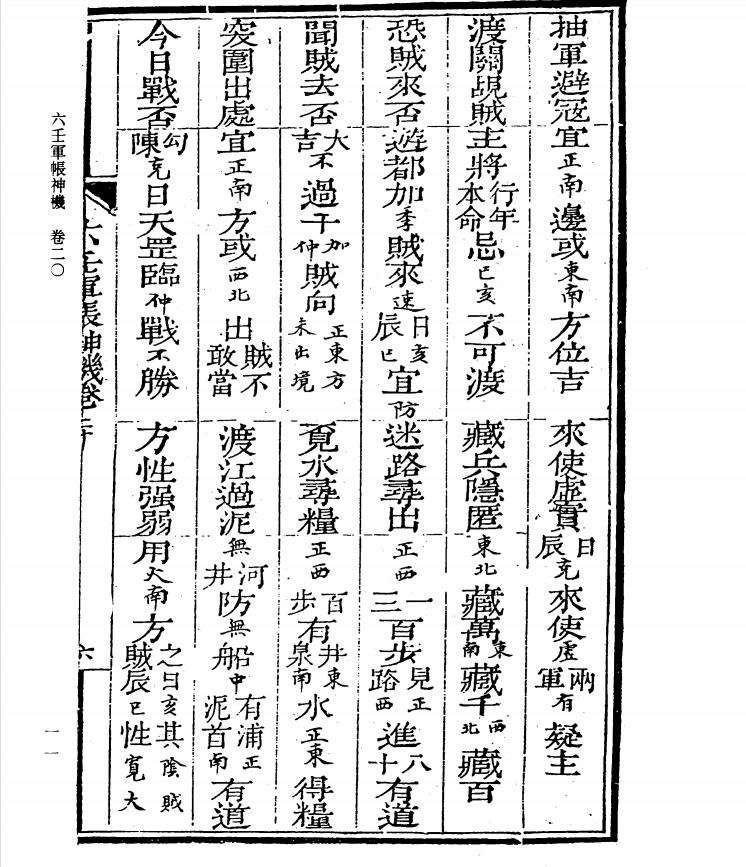 抽軍避冦宜正南邊或東南方位吉
來使虛實日辰克來使虛兩軍有疑主
渡關覘賊主將行年本命忌巳亥不可渡
藏兵隱匿東北藏萬東南藏千西北藏百
恐賊來否遊都加季賊來速日辰亥巳宜防
迷路尋出正西一三百步見正路西進八十有道
聞賊去否大吉不過干加仲賊向正東方未出境
覓水尋糧正西百步有井泉東南水正東得糧
突圍出處宜正南方或西北出賊不敢當
渡江過泥無河井防無船中有浦泥正首南有道
今日戰否勾陳克日天罡臨仲戰不勝
方性强弱用大南方之日亥賊辰巳其陰賊性寬大
六壬軍帳神機卷二十
六
六壬軍帳神機 卷二〇
一一